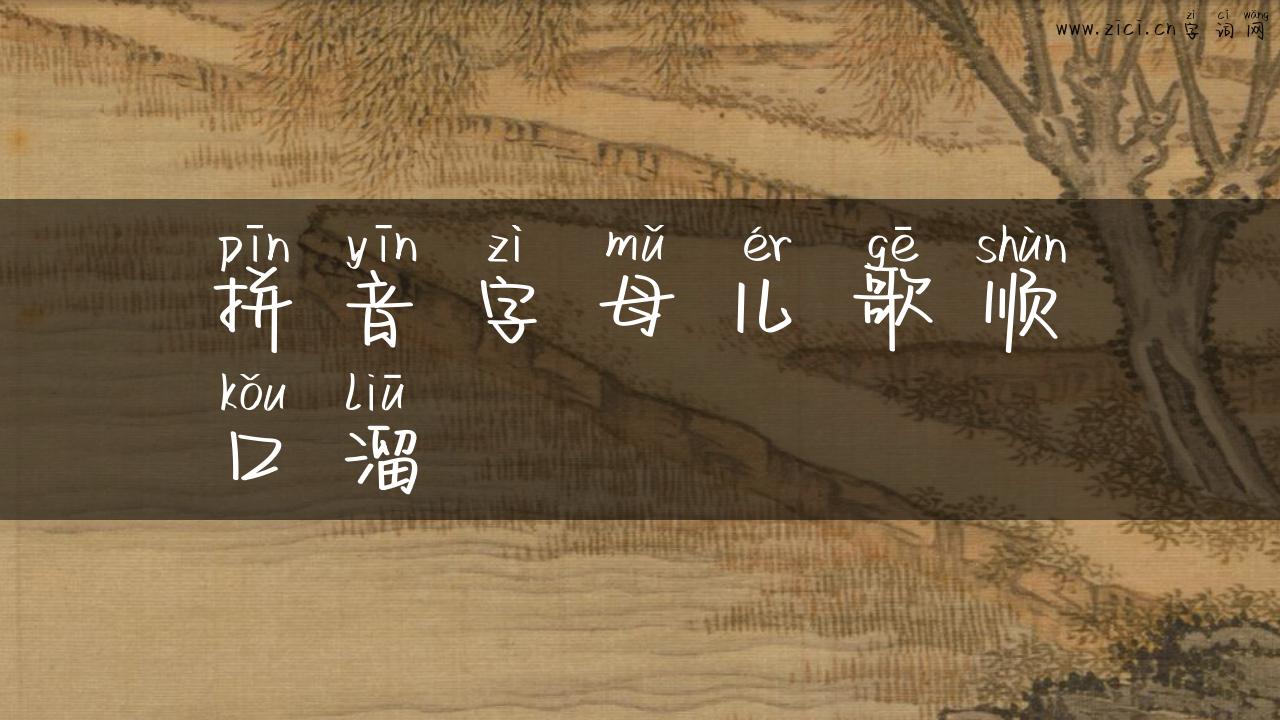 zì cí wǎng
www.zici.cn字词网
pīn yīn zì mǔ ér gē shùn
拼音字母儿歌顺
kǒu liū
口溜